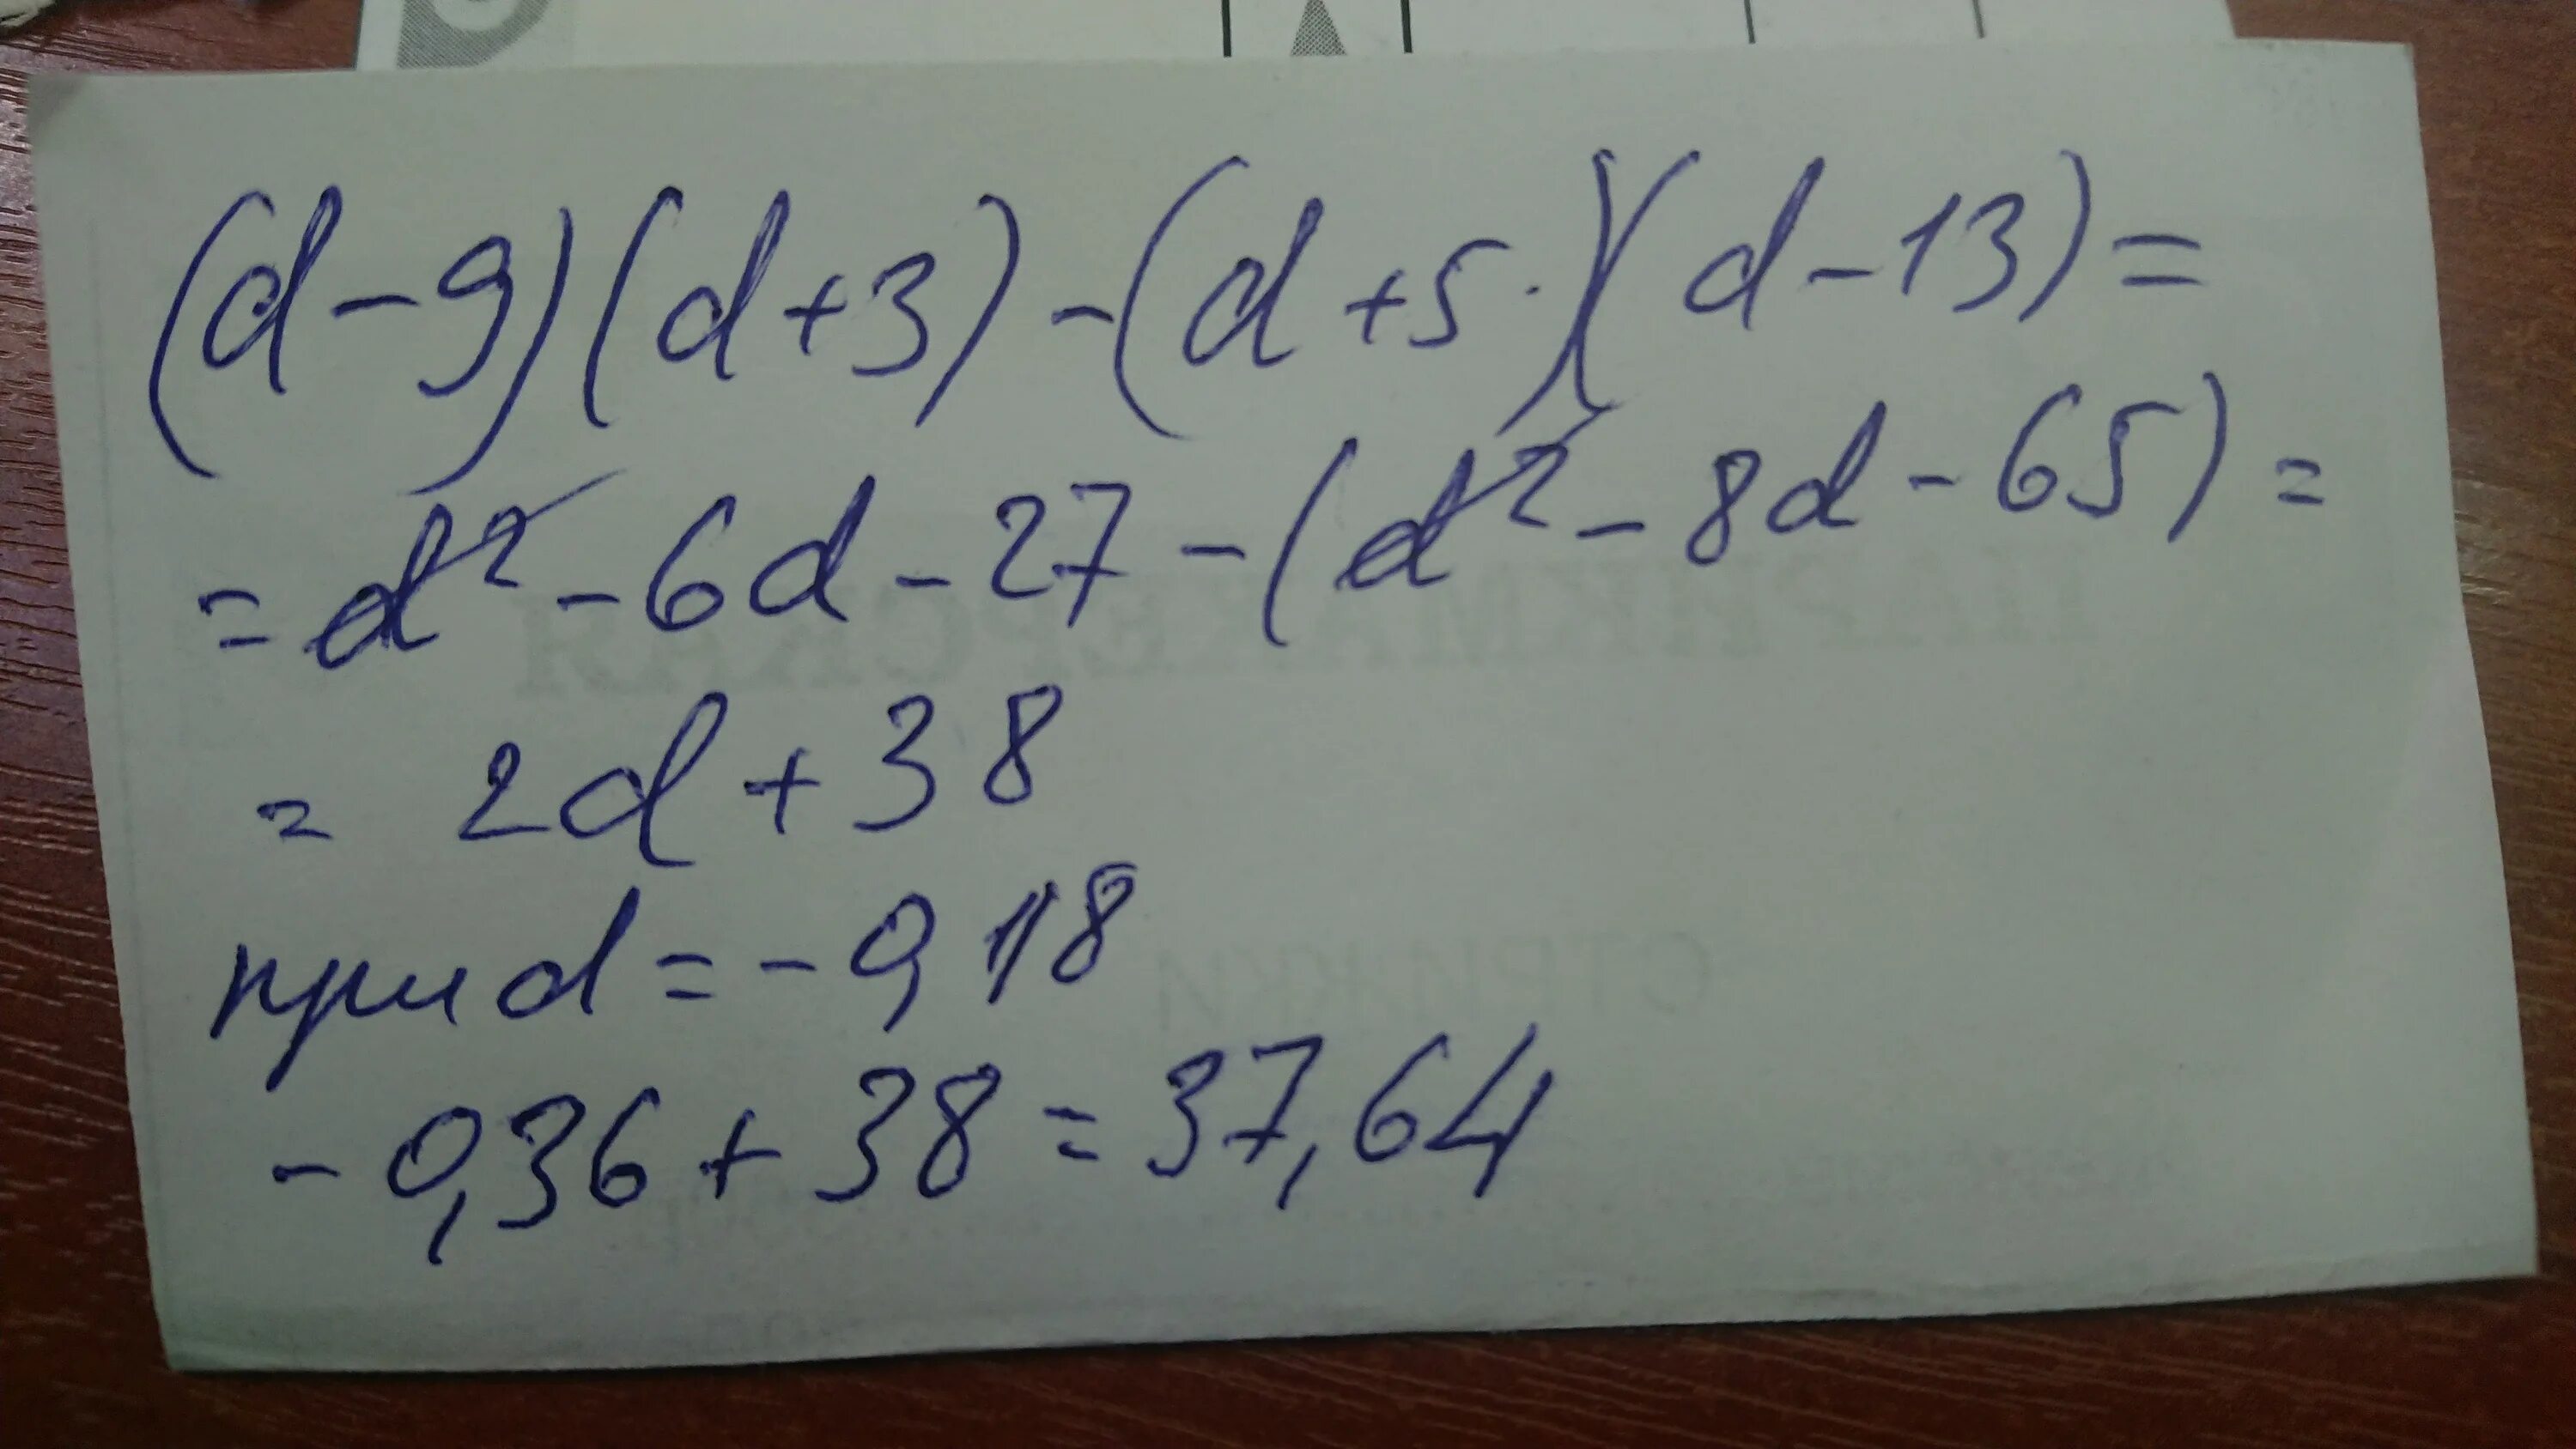 (d-9)(d+3)-(d+5·)(d-13)=
=d²-6d-27-(d²-8d-65)=
= 2d+38
при d=-0,18
-0,36+38=37,64
ПАРИКМАХЕРСКАЯ
СТРИЖКИ